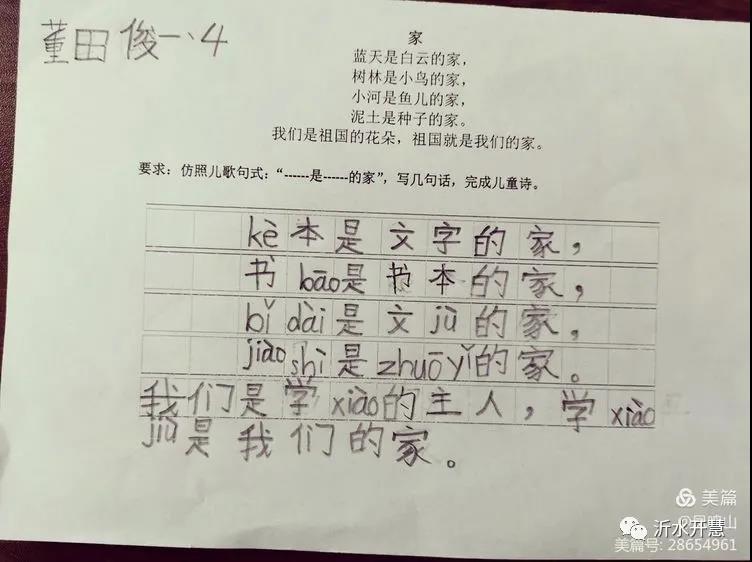 董田俊一、4
家
蓝天是白云的家，
树林是小鸟的家，
小河是鱼儿的家，
泥土是种子的家。
我们是祖国的花朵，祖国就是我们的家。
要求：仿照儿歌句式：“------是------的家”，写几句话，完成儿童诗。
kè本是文字的家，
书bāo是书本的家，
bǐ dài是文jù的家，
jiào shì是zhuō yǐ的家。
我们是学xiào的主人，学xiào
jiù是我们的家。
美篇
沂水开慧
美篇号: 28654961